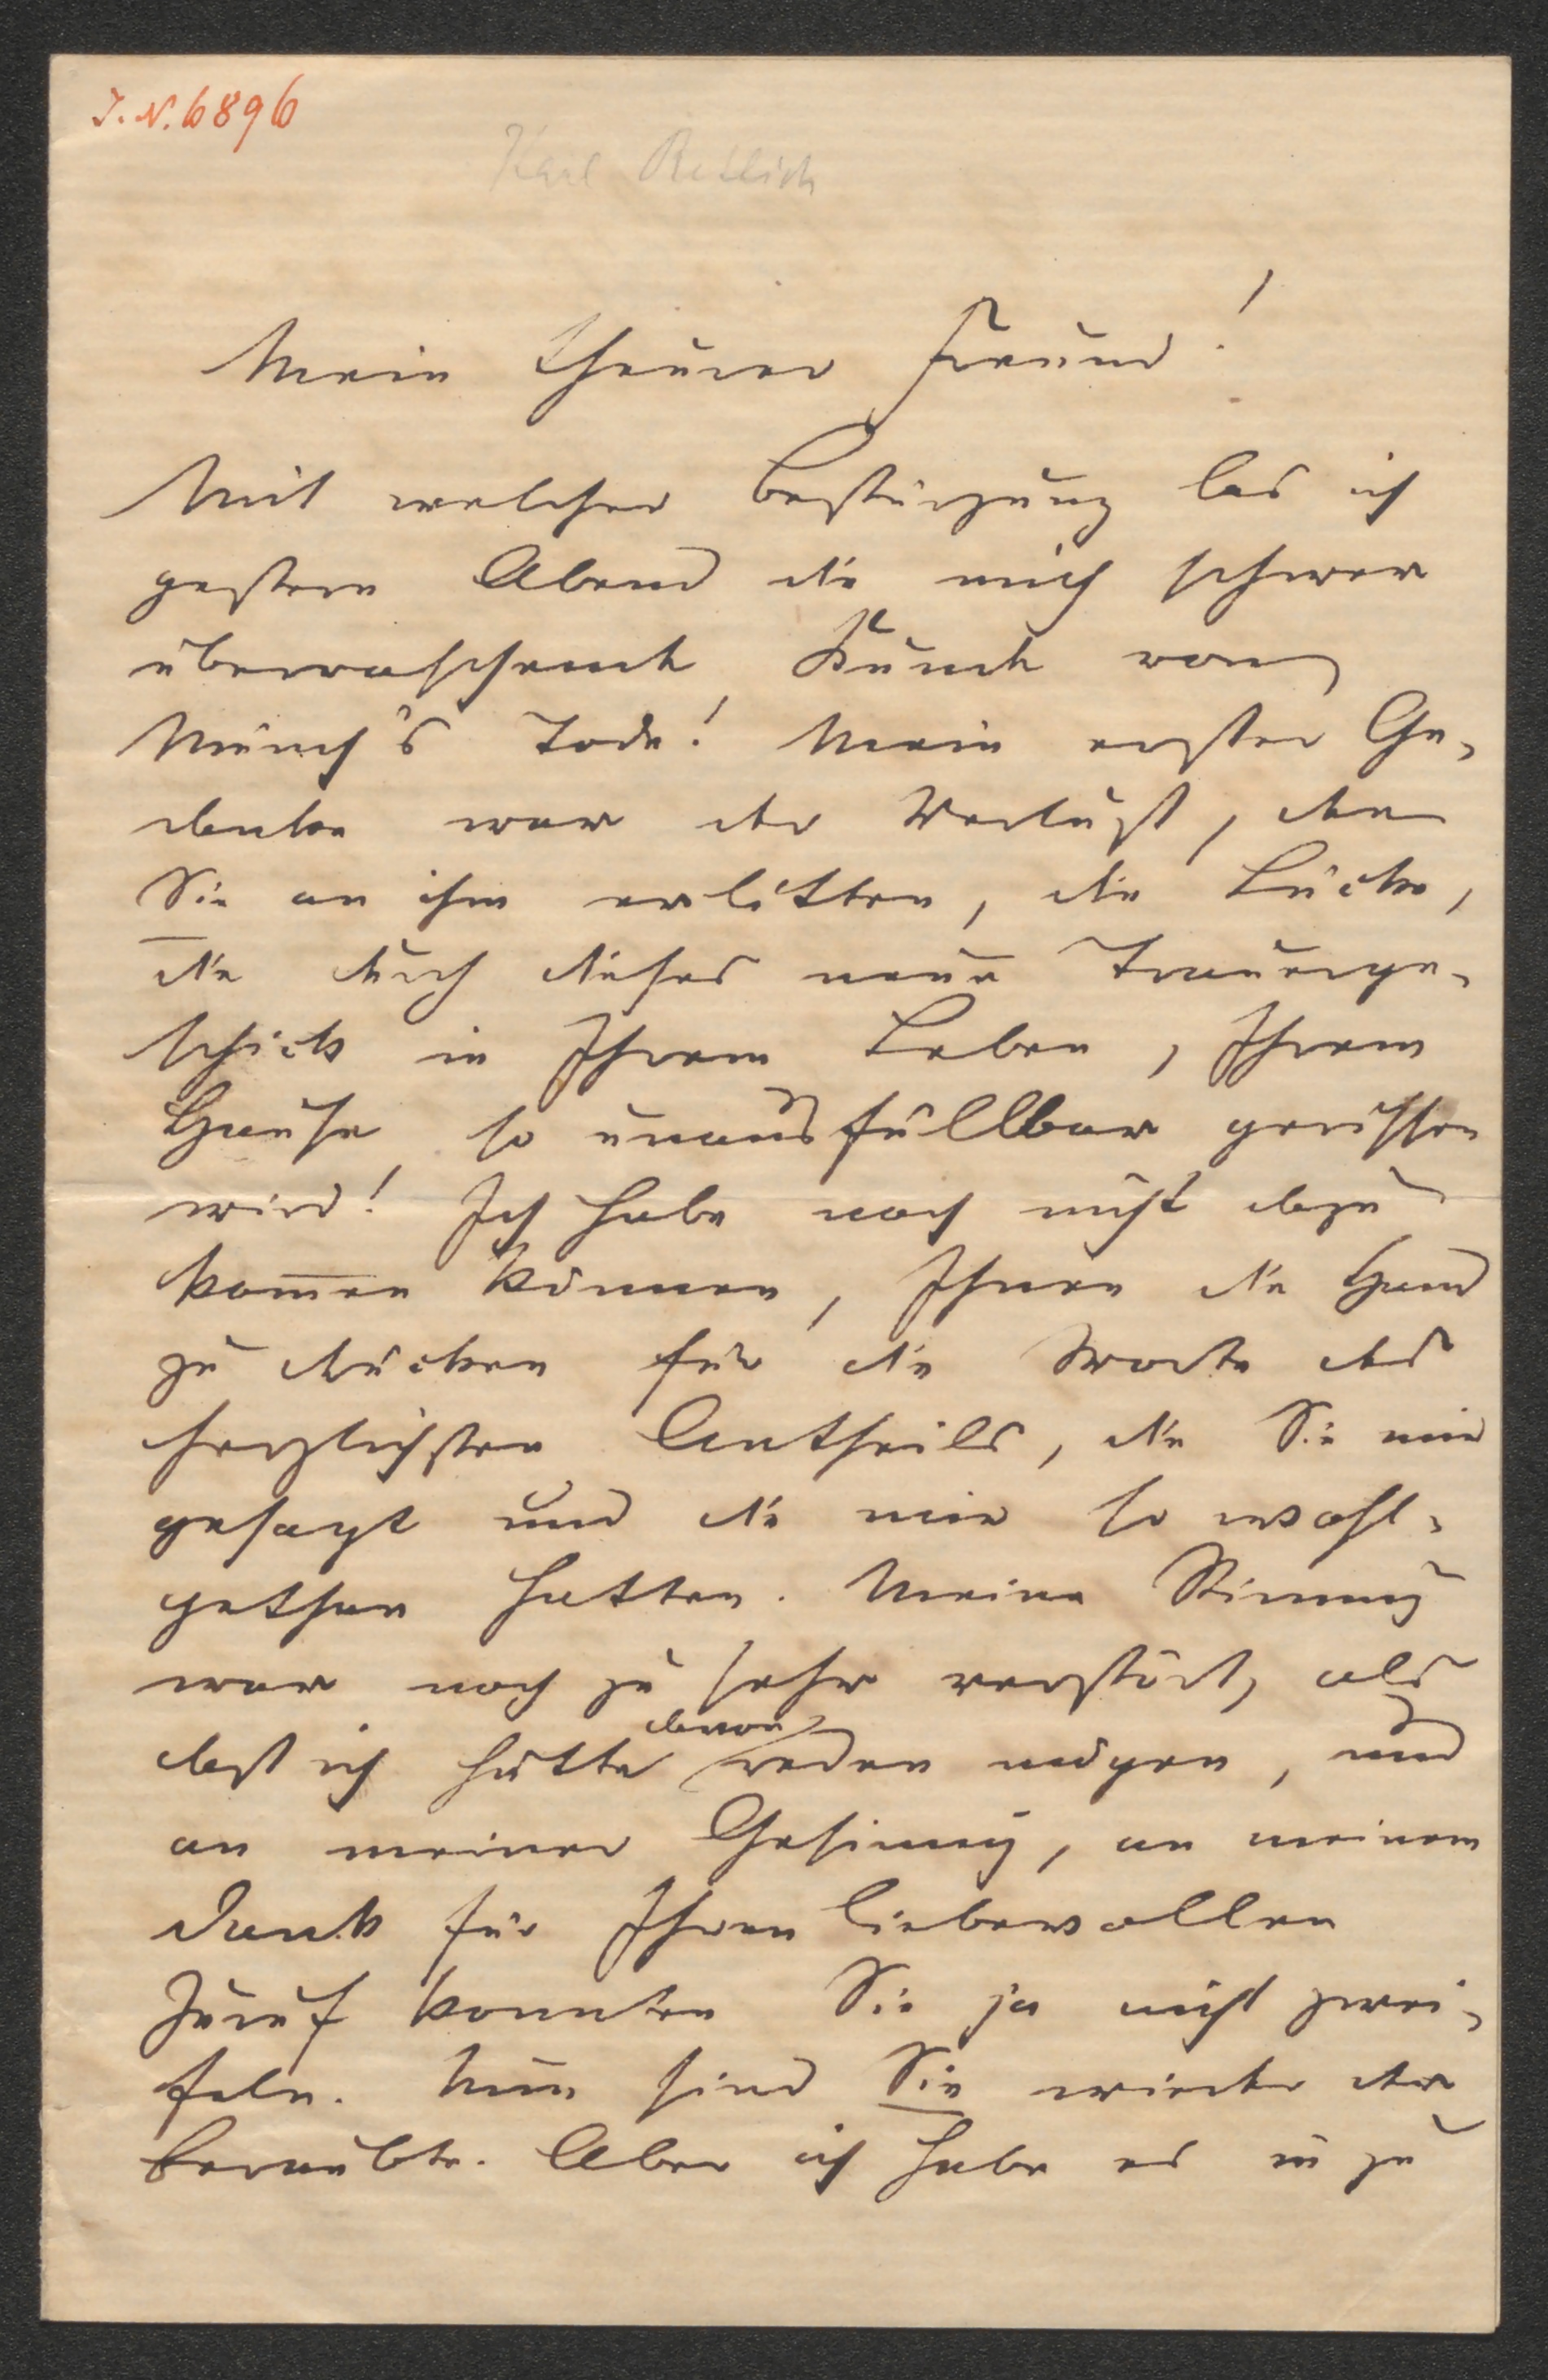 I. N. 6896
Karl Rettich
Mein theurer Freund!
Mit welcher Bestürzung las ich
gestern Abend die mich schwer
überraschende Kunde von
Münch's Tode! Mein erster Ge-
danke war der Verlust, den
Sie an ihm erlitten, die Lücke,
die durch dieses neue Trauerge-
schick in Ihrem Leben, Ihrem
Hause so unausfüllbar gerissen
wird! Ich habe noch nicht dazu
kom̄en können, Ihnen die Hand
zu drücken für die Worte des
herzlichsten Antheils, die Sie mir
gesagt und die mir so wohl-
gethan hatten. Meine Stimmung
war noch zu sehr verstört, als
daß ich hätte davon reden mögen, und
an meiner Gesinnung, an meinem
Dank für Ihren liebevollen
Zuruf konnten Sie ja nicht zwei-
feln. Nun sind Sie wieder der
Beraubte. Aber ich habe es in zu